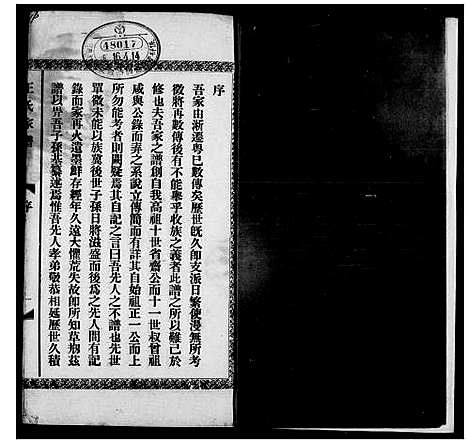 序
吾家由浙遷粵已數傳矣歷世既久即支派日繁使漫無所考
徵將再數傳後有不能舉乎收族之義者此譜之所以難已於
修也夫吾家之譜創自我高祖十世省齋公而十一世叔曾祖
咸與公錄而弆之系說立傳簡而有詳其自始祖正一公而上
所勿能考者則闕疑焉其自記之言曰吾先人之不譜也先世
單微未能以族冀後世子孫日將滋盛而後為之先人間有記
錄而家再火遺墨鮮存經年久遠大懼荒失故即所知草刱茲
譜以畀吾子孫其纂述焉惟吾先人孝弟敬恭相延歷世久積
王氏家譜
序
48017
16 4 14